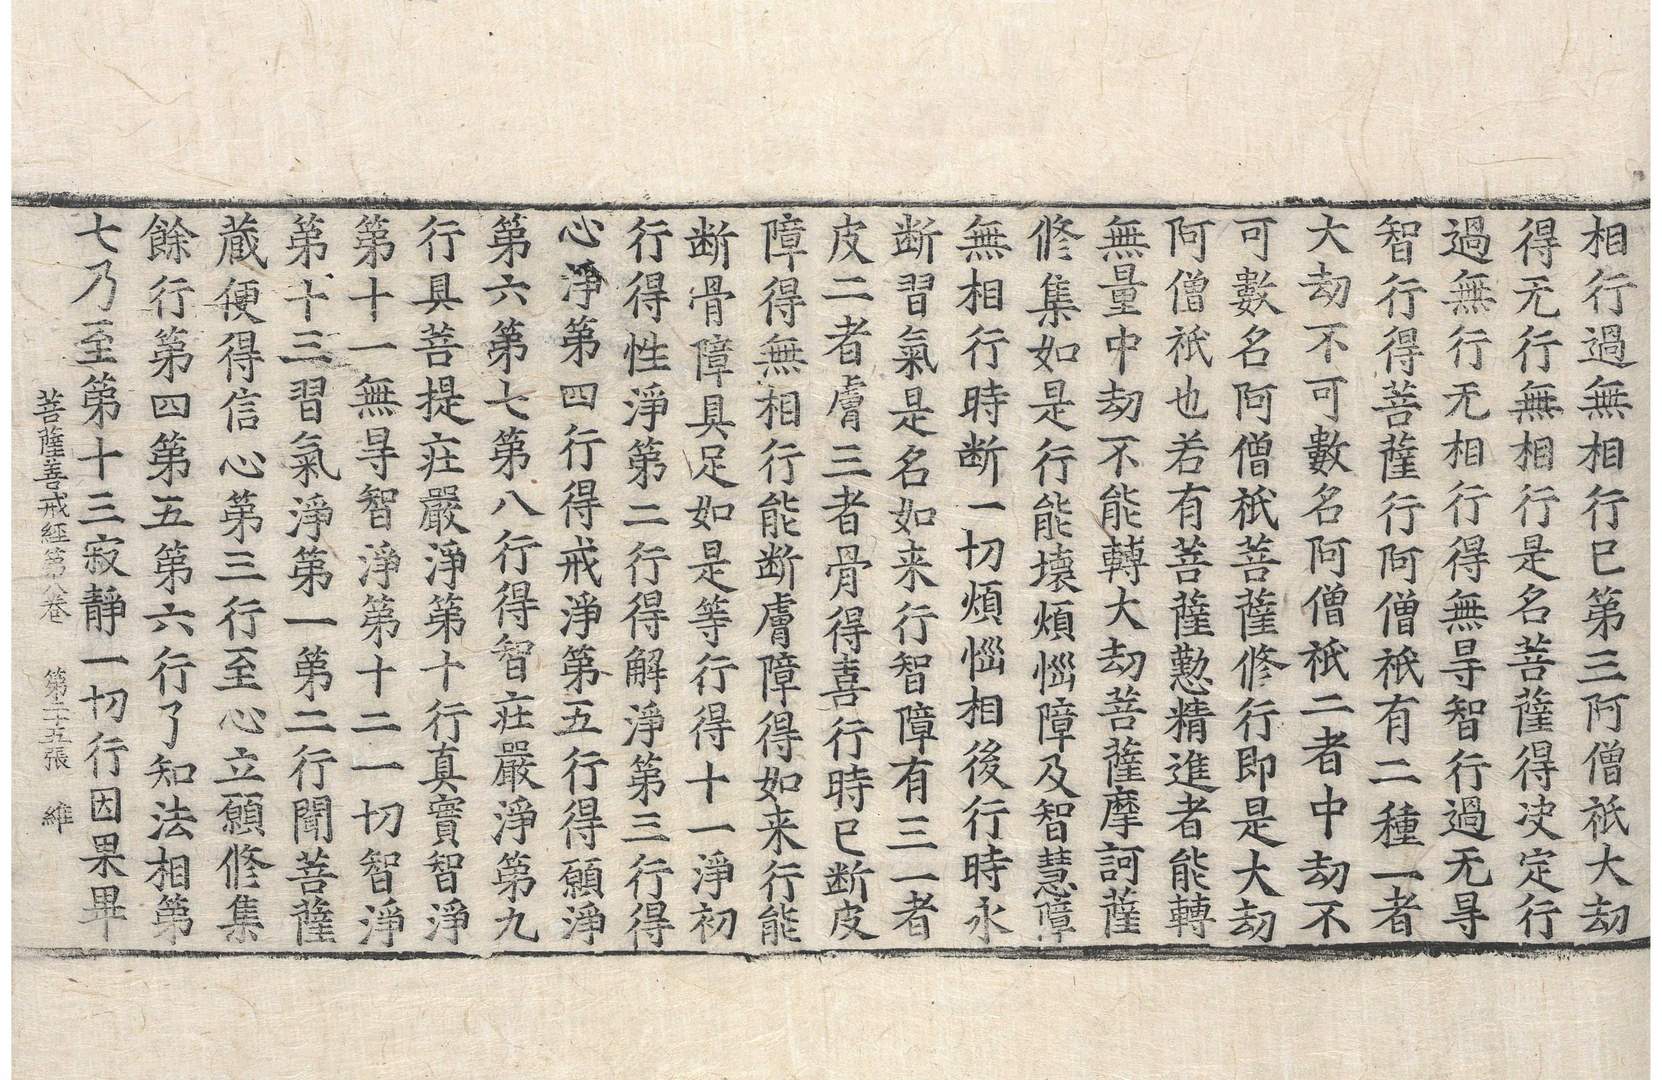 相行過無相行已第三阿僧祇大劫
得无行無相行是名菩薩得决定行
過無行无相行得無㝵智行過无㝵
智行得菩薩行阿僧祇有二種一者
大劫不可數名阿僧祇二者中劫不
可數名阿僧祇菩薩修行即是大劫
阿僧祇也若有菩薩懃精進者能轉
無量中劫不能轉大劫菩薩摩訶薩
修集如是行能壞煩惱障及智慧障
無相行時断一切煩惱相後行時永
断習氣是名如来行智障有三一者
皮二者膚三者骨得喜行時已断皮
障得無相行能断膚障得如来行能
断骨障具足如是等行得十一淨初
行得性淨第二行得解淨第三行得
心淨第四行得戒淨第五行得願淨
第六第七第八行得智庄嚴淨第九
行具菩提庄嚴淨第十行真實智淨
第十一無㝵智淨第十二一切智淨
第十三習氣淨第一第二行聞菩薩
蔵便得信心第三行至心立願修集
餘行第四第五第六行了知法相第
七乃至第十三寂靜一切行因果畢
菩薩善戒經第八卷 第二十五張 維